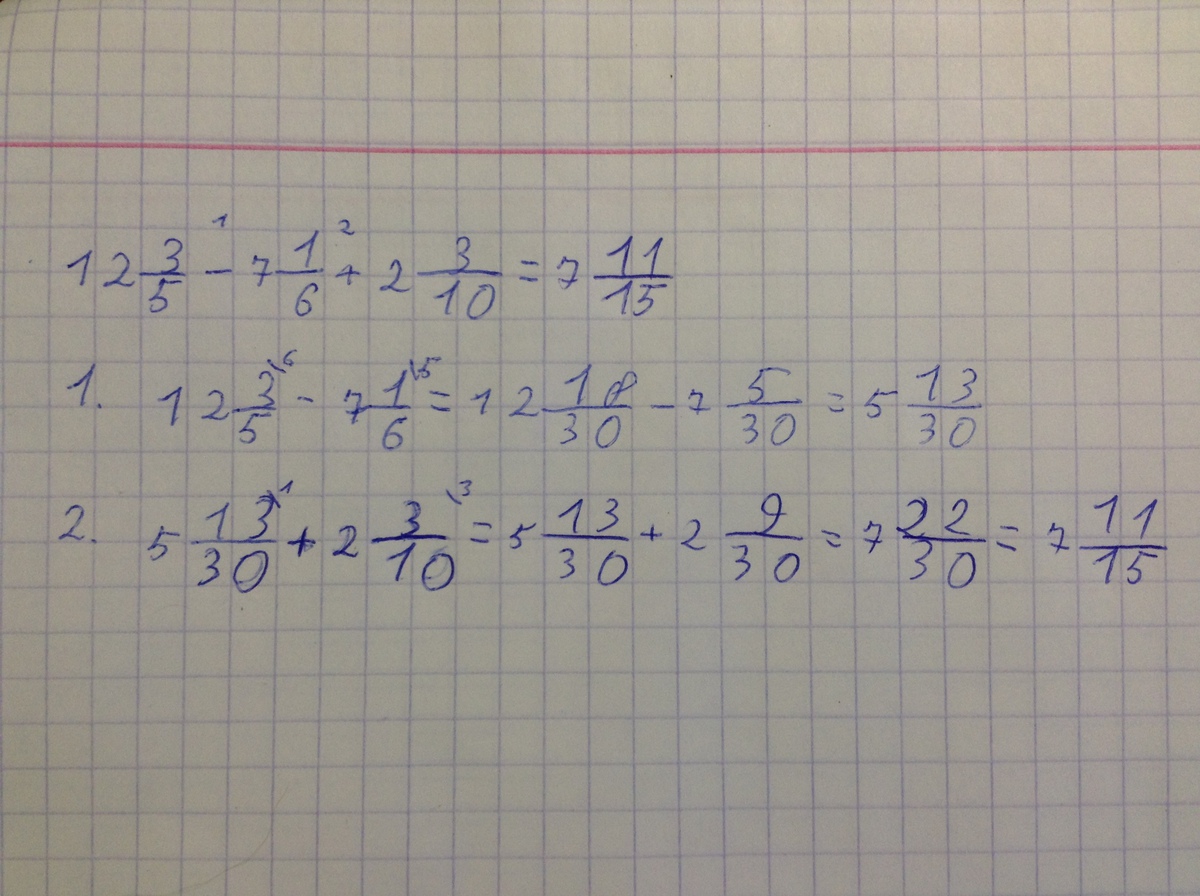 12 3/5 - 7 1/6 + 2 3/10 = 7 11/15
1. 12 3/5 - 7 1/6 = 12 18/30 - 7 5/30 = 5 13/30
2. 5 13/30 + 2 3/10 = 5 13/30 + 2 9/30 = 7 22/30 = 7 11/15